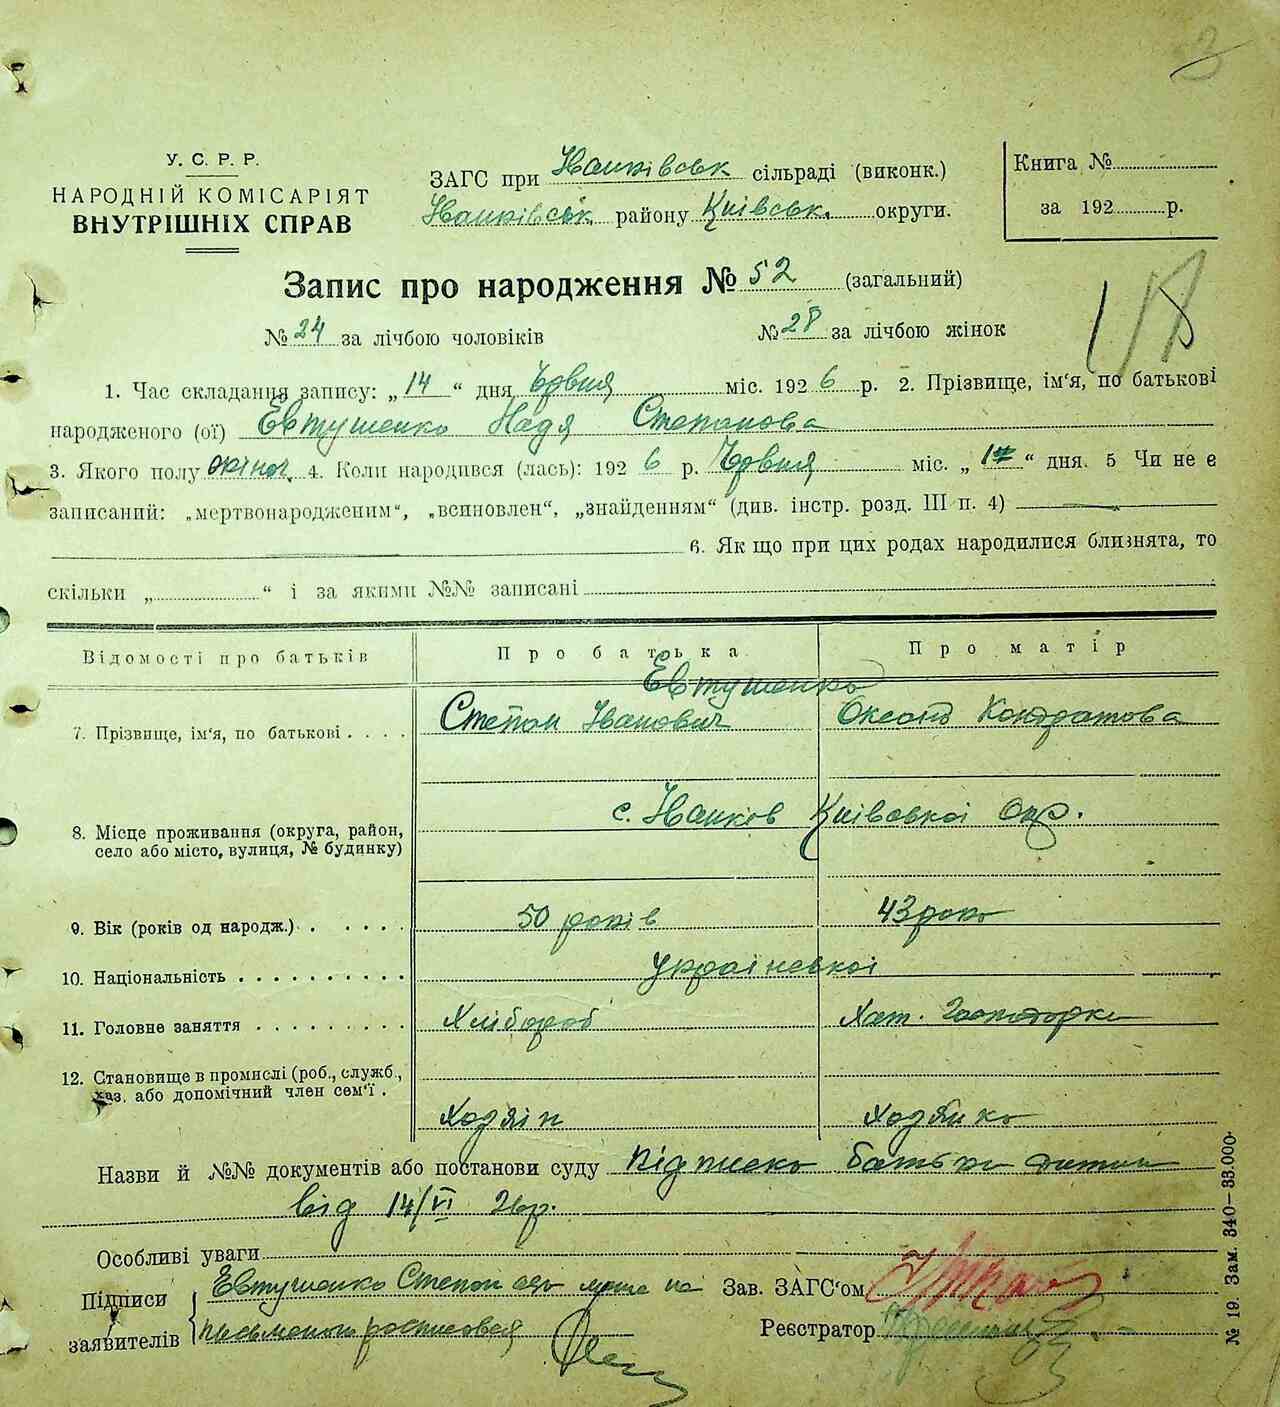 3
У. С. Р. Р.
НАРОДНІЙ КОМІСАРІЯТ
ВНУТРІШНІХ СПРАВ
ЗАГС при Іванківськ сільраді (виконк.)
Іванківськ району Київськ. округи.
Книга №
за 192 р.
Запис про народження № 52 (загальний)
№ 24 за лічбою чоловіків № 28 за лічбою жінок
1. Час складання запису: „14“ дня Червня міс. 1926 р. 2. Прізвище, ім'я, по батькові
народженого (ої) Евтушенко Надя Степанова
3. Якого полу жіноч. 4. Коли народився (лась): 1926 р. Червня міс. „ “ дня. 5 Чи не є
записаний: „мертвонародженим“, „всиновлен“, „знайденням“ (див. інстр. розд. III п. 4)
6. Як що при цих родах народилися близнята, то
скільки „ “ і за якими №№ записані
Відомості про батьків Про батька Про матір
Евтушенко
7. Прізвище, ім'я, по батькові . . . . Степан Іванович Оксана Кондратова
8. Місце проживання (округа, район,
село або місто, вулиця, № будинку) с. Іванков Київської Окр.
9. Вік (років од народж.) . . . . . 50 років 43 роки
10. Національність . . . . . . . . . . української
11. Головне заняття . . . . . . . . . Хлібороб Хат. Господарка
12. Становище в промислі (роб., служб.,
хаз. або допомічний член сем'ї . Хозяін Хозяйка
Назви й №№ документів або постанови суду підписка батьки дитини
від 14/VI 26р.
Особливі уваги
Підписи
заявителів
Евтушенко Степан
Зав. ЗАГС'ом
Реєстратор
№ 19. Зам. 340—33.000.